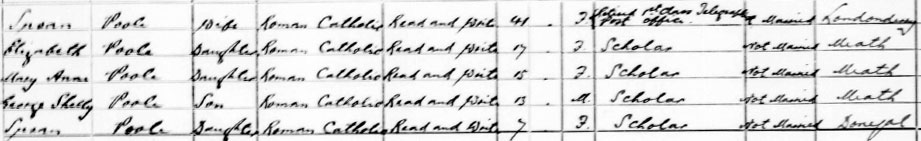 Susan Poole Wife Roman Catholic Read and Write 41 - F. Retired 1st Class Telegraphist Post Office Married Londonderry
Elizabeth Poole Daughter Roman Catholic Read and Write 17 - F. Scholar Not Married Meath
Mary Anne Poole Daughter Roman Catholic Read and Write 15 - F. Scholar Not Married Meath
George Shelly Poole Son Roman Catholic Read and Write 13 - M. Scholar Not Married Meath
Susan Poole Daughter Roman Catholic Read and Write 7 - F. Scholar Not Married Donegal